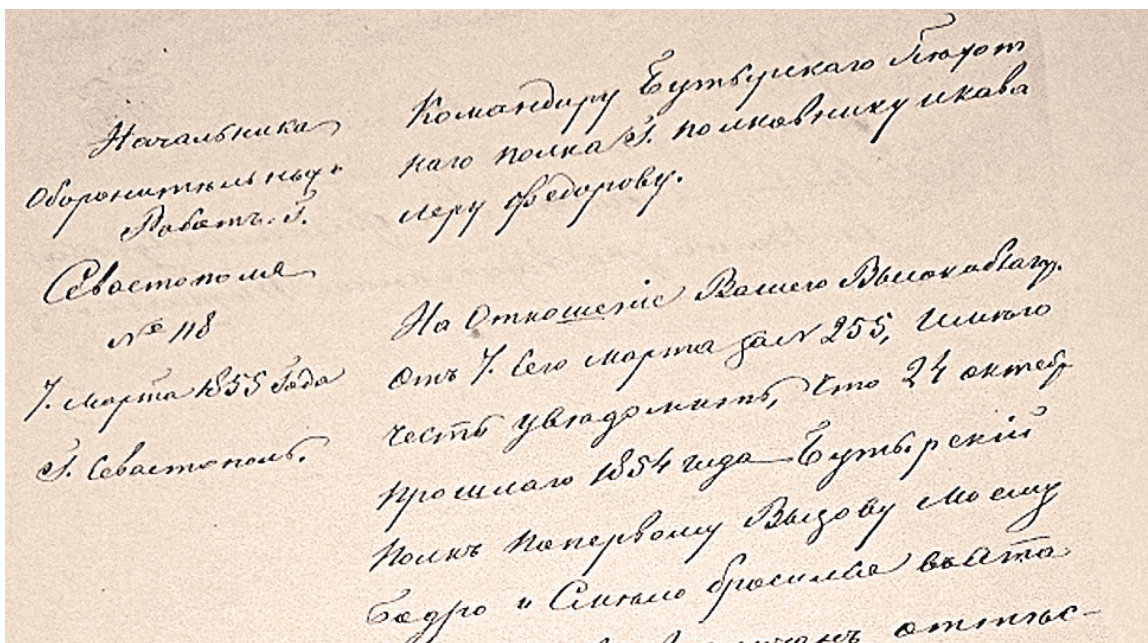 Начальника
Оборонительныхъ
Работъ Г.
Севастополя
№ 118
7. Марта 1855 Года
Г. Севастополь.
Командиру Бутырскаго Пѣхот
наго полка Г. полковнику икава
леру Федорову.
На Отношеніе Вашего Высокоблаг.
отъ 7. Сего Марта за № 255, Имѣю
честь увѣдомить, Что 24 октябр
прошлаго 1854 года Бутырскій
полкъ поперьвому Вызову Моему
бодро и Смѣло бросился въАта
оттѣс-